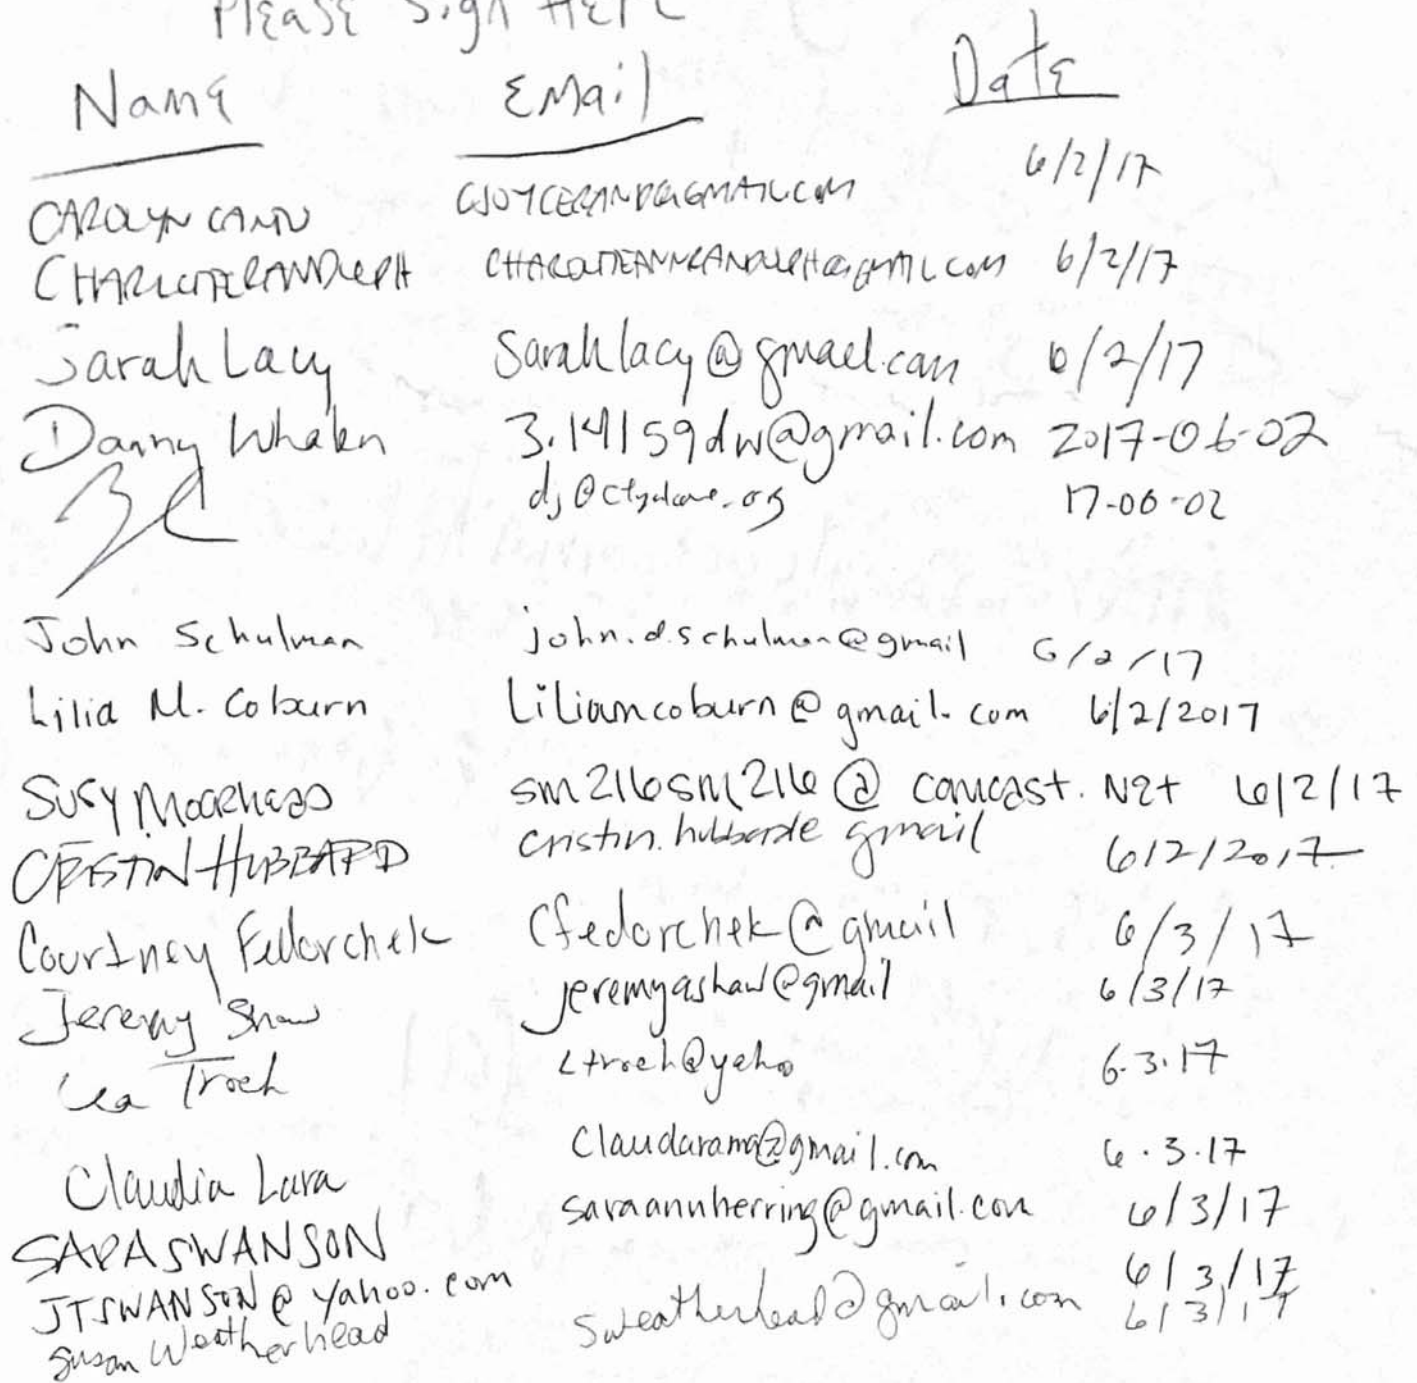 Please Sign Here
Name Email Date
CAROLYN CANTU CJOYCERAND@GMAIL.COM 6/2/17
CHARLOTTE RANDOLPH CHARLOTTEANNRANDOLPH@GMAIL.COM 6/2/17
Sarah Lacy Sarahlacy@gmail.com 6/2/17
Danny Whalen 3.14159dw@gmail.com 2017-06-02
17-06-02
John Schulman john.d.schulman@gmail 6/2/17
Lilia M. Coburn Liliamcoburn@gmail.com 6/2/2017
Susy Moorhead sm216sm216@comcast.net 6/2/17
CRISTIN HUBBARD cristin.hubbard@gmail 6/2/2017
Courtney Fedorchek cfedorchek@gmail 6/3/17
Jeremy Shaw jeremyashaw@gmail 6/3/17
Lea Troeh ltroeh@yahoo 6.3.17
Claudia Lara Claudarama@gmail.com 6.3.17
SARA SWANSON saraannherring@gmail.com 6/3/17
JTSWANSON@yahoo.com 6/3/17
Susan Weatherhead sweatherhead@gmail.com 6/3/17